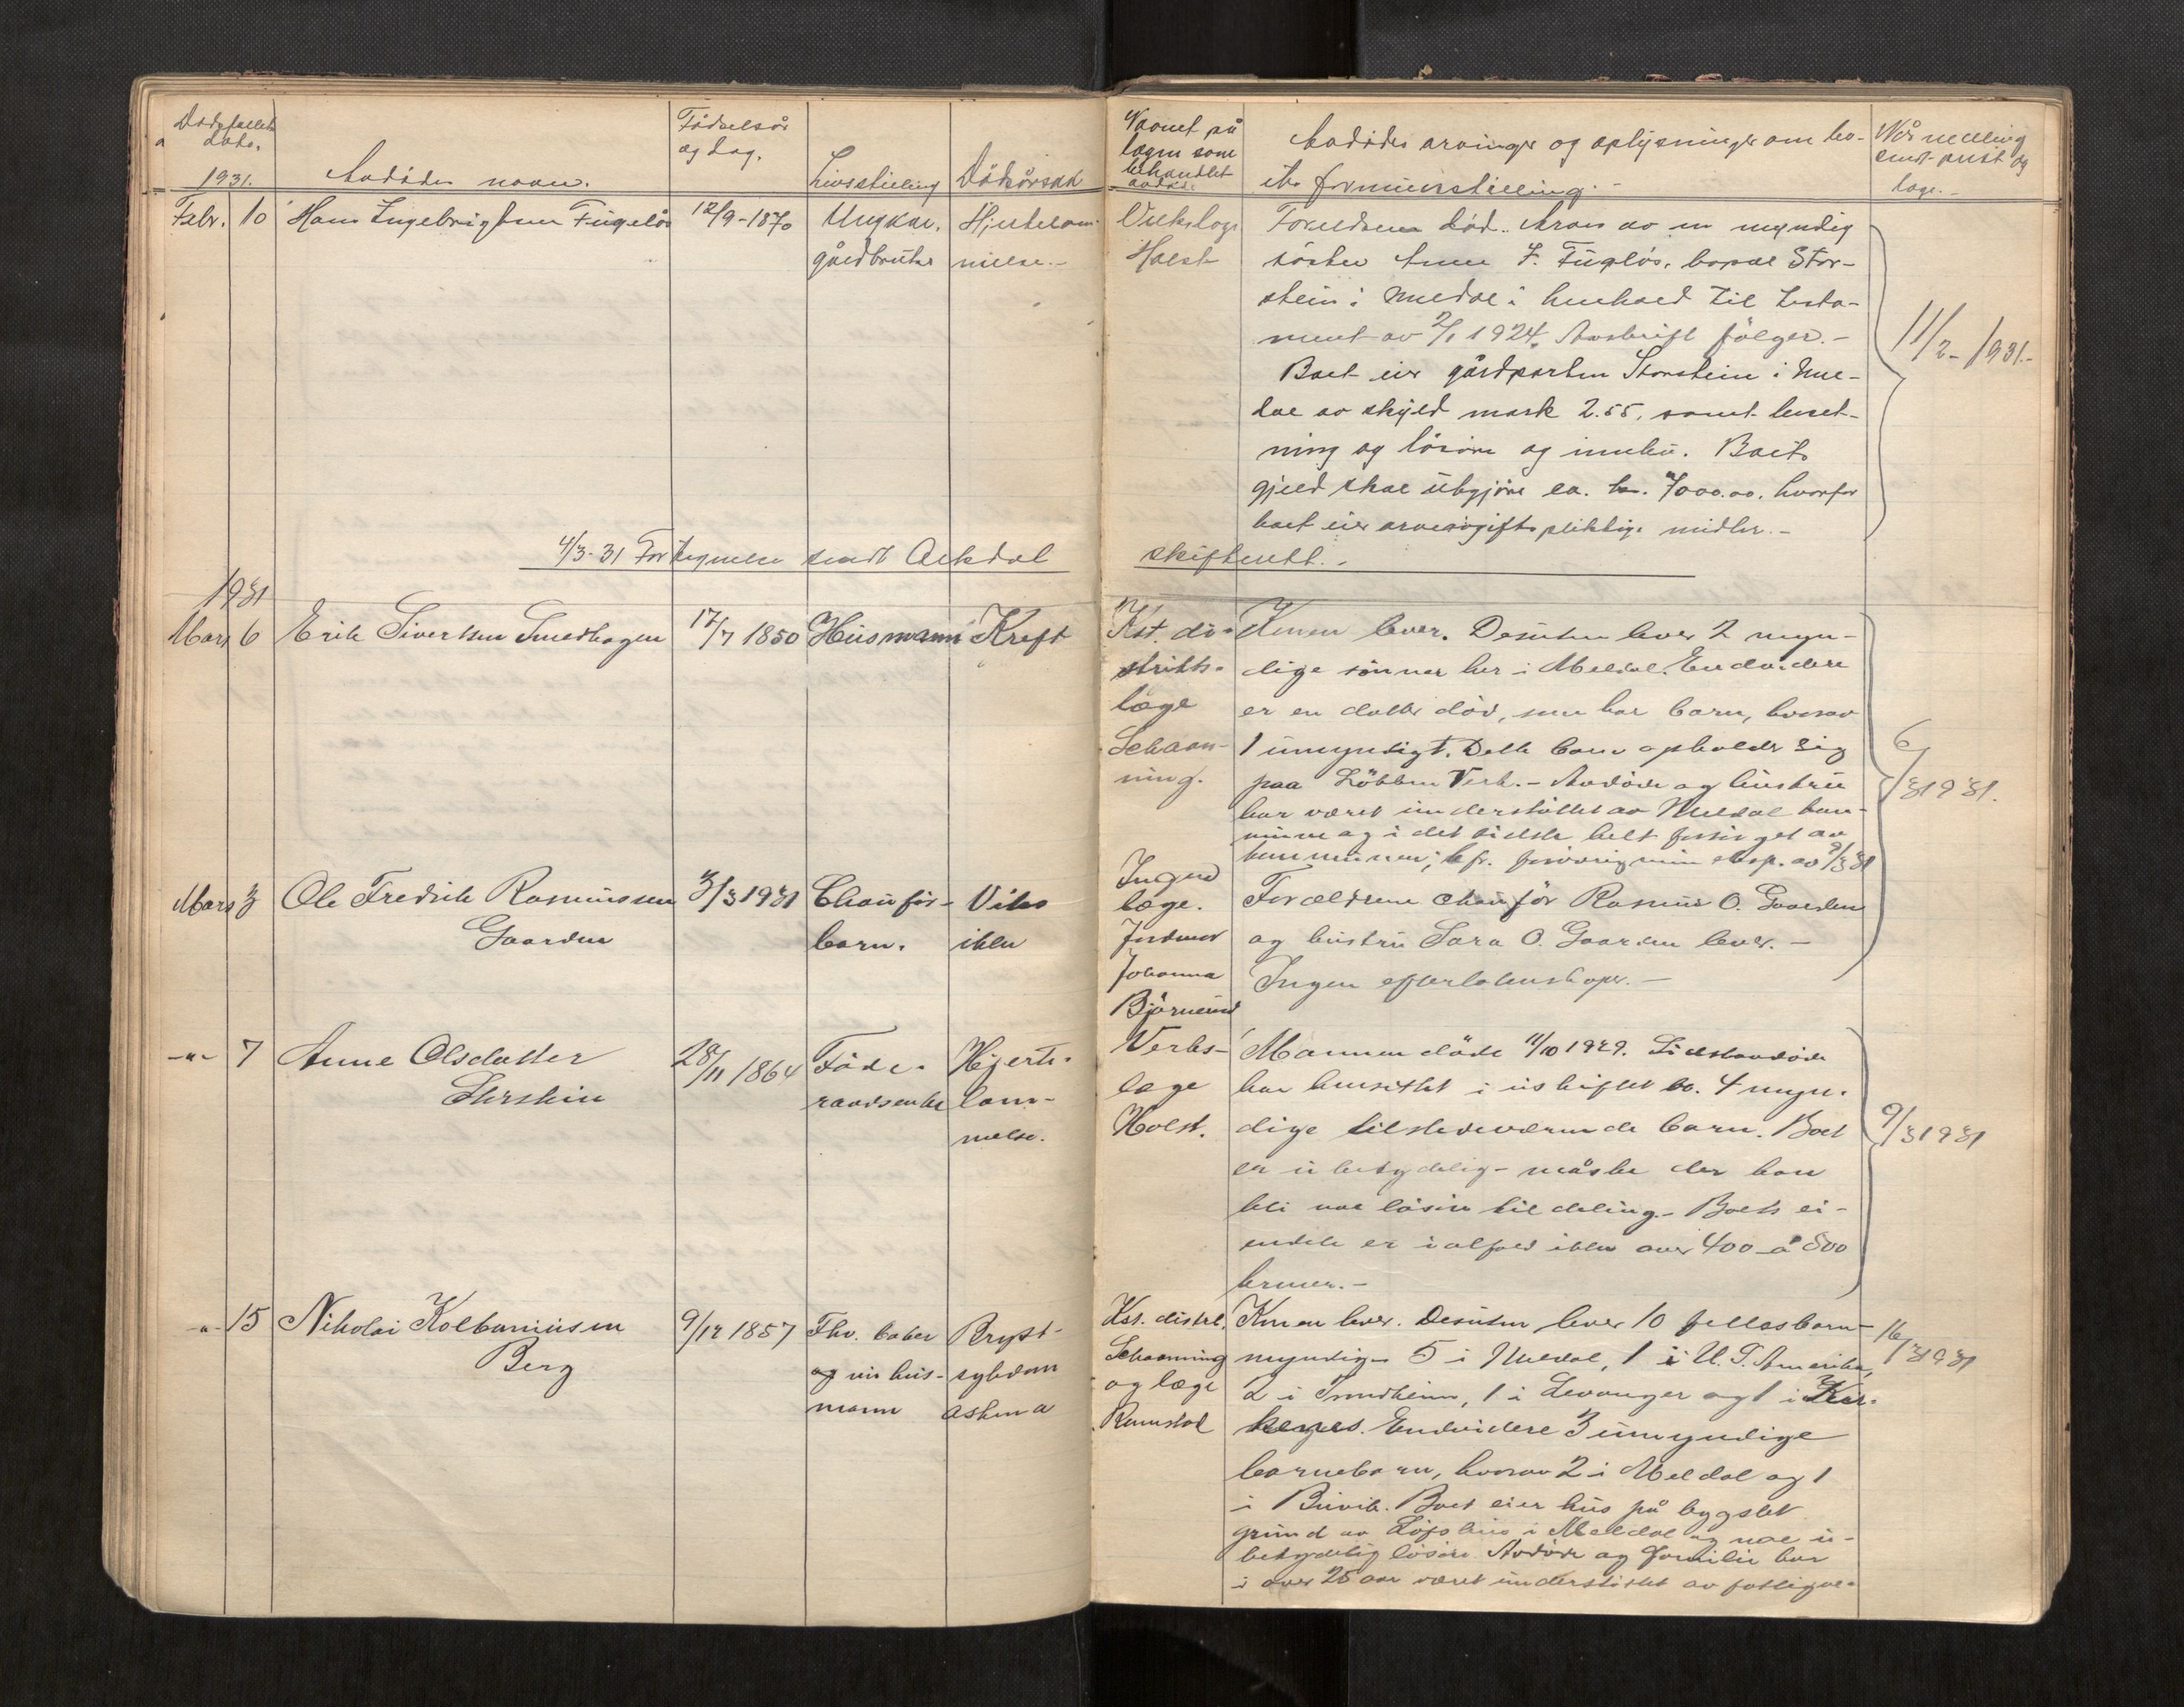 Dødsfallets
dato.
1931.
Avdødes navn.
Fødselsår
og dag.
Livsstilling
Dødsårsak
Navnet på
lægen som
behandlet
avdøde
Avdødes arvinger og oplysninger om bo-
ets formuesstilling.-
Når melling
sendt prest og
læge.-
Febr. 10 Hans Ingebrigtsen Fuglås 12/9-1870
Ungkar,
gårdbruker
Hjertelam-
melse.-
Verkslæge
Holst
Foreldrene død. Arves av en myndig
søster Anne I. Fuglås, bopæl Stor-
stein i Meldal i henhold til testa-
ment av 2/1 1924. Avskrift følger.-
Boet eier gårdparten Storstein i Mel-
dal av skyld mark 2.55, samt buset-
ning og løsøre og innbu. Boets
gjeld skal utgjøre ca. kr. 7000.00, hvorfor
boet eier arveavgiftspliktige midler.-
11/2-1931.-
4/3-31 Fortegnelse sendt Orkdal skifterett.-
1931
Mars 6 Erik Sivertsen Smedhagen 17/7 1850 Husmann Kreft
Kst. di-
strikts-
læge
Schaan-
ning.
Konen lever. Desuten lever 2 myn-
dige sønner her i Meldal. Endvidere
er en datter død, som har barn, hvorav
1 umyndigt. Dette barn opholder sig
paa Løkken Verk.- Avdøde og hustru
har været understøttet av Meldal kom-
mune og i det sidste helt forsørget av
kommunen; kfr. forøvrig min eksp. av 9/3 31
6/3 1931.
Mars 3 Ole Fredrik Rasmussen
Gaarden
3/3 1931
Chauffør-
barn.
Vites
ikke
Ingen
læge.
Jordmor
Johanna
Bjørnerud
Forældrene chauffør Rasmus O. Gaarden
og hustru Sara O. Gaarden lever.-
Ingen efterlatenskaper.-
-"- 7 Anne Olsdatter
28/11 1864
Føde-
raadsenke
Hjerte-
lam-
melse.
Verks-
læge
Holst.
Mannen døde 11/10 1929. Sidstavdøde
har hensittet i uskiftet bo. 4 myn-
dige tilstedeværende barn. Boet
er ubetydelig - måske der kan
bli noe løsøre til deling.- Boets ei-
endele er ialfald ikke over 400 à 500
kroner.-
9/3 1931
-"- 15 Nikolai Kolbeinsen
Berg
9/12 1857
Fhv. baker
og nu hus-
mann
Bryst-
sykdom
astma
Kst. distrl.
Schaanning
og læge
Ramstad
Konen lever. Desuten lever 10 fellesbarn-
myndige 5 i Meldal, 1 i U. S. Amerika,
2 i Trondheim, 1 i Levanger og 1 i Kir-
kenes. Endvidere 3 umyndige
barnebarn, hvorav 2 i Meldal og 1
i Buvik. Boet eier hus på bygslet
grund av Løfshus i Meldal og noe u-
betydelig løsøre. Avdøde og familie har
i over 25 aar været understøttet av fattigve-
16/3 1931